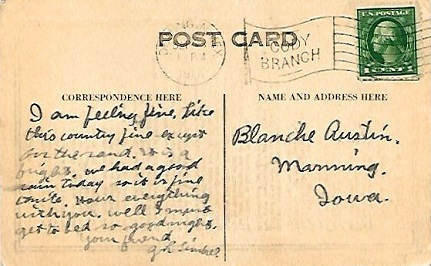 POST CARD
CODY
BRANCH
U.S. POSTAGE
CORRESPONDENCE HERE
NAME AND ADDRESS HERE
I am feeling fine, like
this country fine except
for the sand. it is a
fright. we had a good
rain today so it is fine
with you. well I must
get to bed so goodnight.
Your friend
Blanche Austin.
Manning.
Iowa.